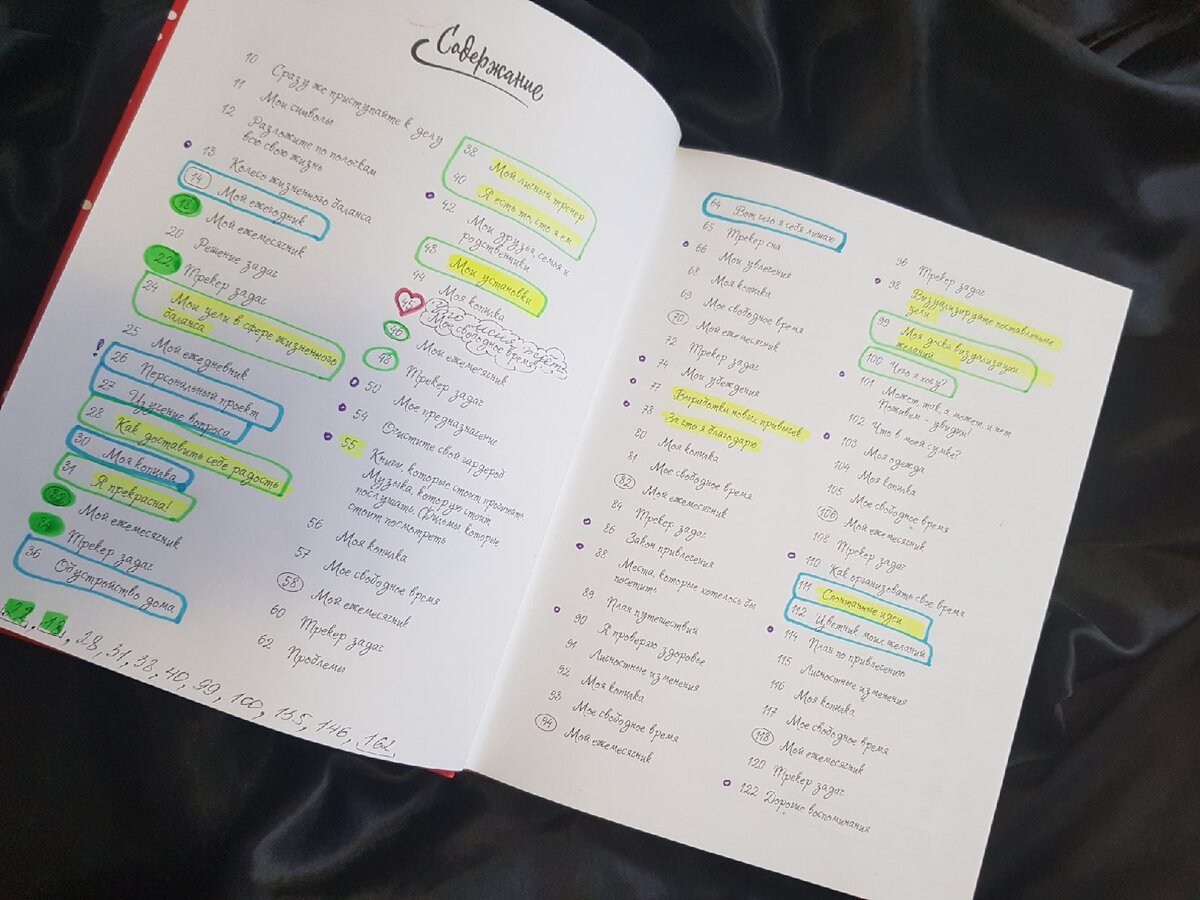 Содержание
10 Сразу же приступайте к делу
11 Мои символы
12 Разложите по полоскам
всю свою жизнь
13 Колесо жизненного баланса
14 Мой ежегодник
Мой ежемесячник
20 Решение задач
22 Трекер задач
24 Мои цели в сфере жизненного
баланса
25 Мой ежедневник
26 Персональный проект
27 Изучение вопроса
28 Как доставить себе радость
30 Моя копилка
31 Я прекрасна!
32 Мой ежемесячник
34 Трекер задач
36 Обустройство дома
22, 18, 28, 31, 38, 40, 99, 100, 135, 146, 162
38 Мой личный тренер
40 Я есть то, что я ем
42 Мои друзья, семья и
родственники
43 Мои установки
44 Моя копилка
45 Мое свободное время
46 Мой ежемесячник
48 Трекер задач
50 Мое предназначение
54 Очистите свой гардероб
55 Книги, которые стоит прочитать.
Музыка, которую стоит
послушать. Фильмы, которые
стоит посмотреть
56 Моя копилка
57 Мое свободное время
58 Мой ежемесячник
60 Трекер задач
62 Проблемы
64 Вот чего я себя лишаю
65 Трекер сна
66 Мои увлечения
68 Моя копилка
69 Мое свободное время
70 Мой ежемесячник
72 Трекер задач
74 Мои убеждения
77 Выработки новых привычек
78 За что я благодарю
80 Моя копилка
81 Мое свободное время
82 Мой ежемесячник
84 Трекер задач
86 Закон привлечения
88 Места, которые хотелось бы
посетить
89 План путешествий
90 Я проверяю здоровье
91 Личностные изменения
92 Моя копилка
93 Мое свободное время
94 Мой ежемесячник
96 Трекер задач
98 Визуализируйте поставленные
цели
99 Моя доска визуализации
желаний
100 Чего я хочу?
101 Может так, а может и нет
Поживем - увидим!
102 Что в моей сумке?
103 Моя одежда
104 Моя копилка
105 Мое свободное время
106 Мой ежемесячник
108 Трекер задач
110 Как организовать свое время
111 Спонтанные идеи
112 Цветник моих желаний
114 План по привлечению
115 Личностные изменения
116 Моя копилка
117 Мое свободное время
118 Мой ежемесячник
120 Трекер задач
122 Дорогие воспоминания